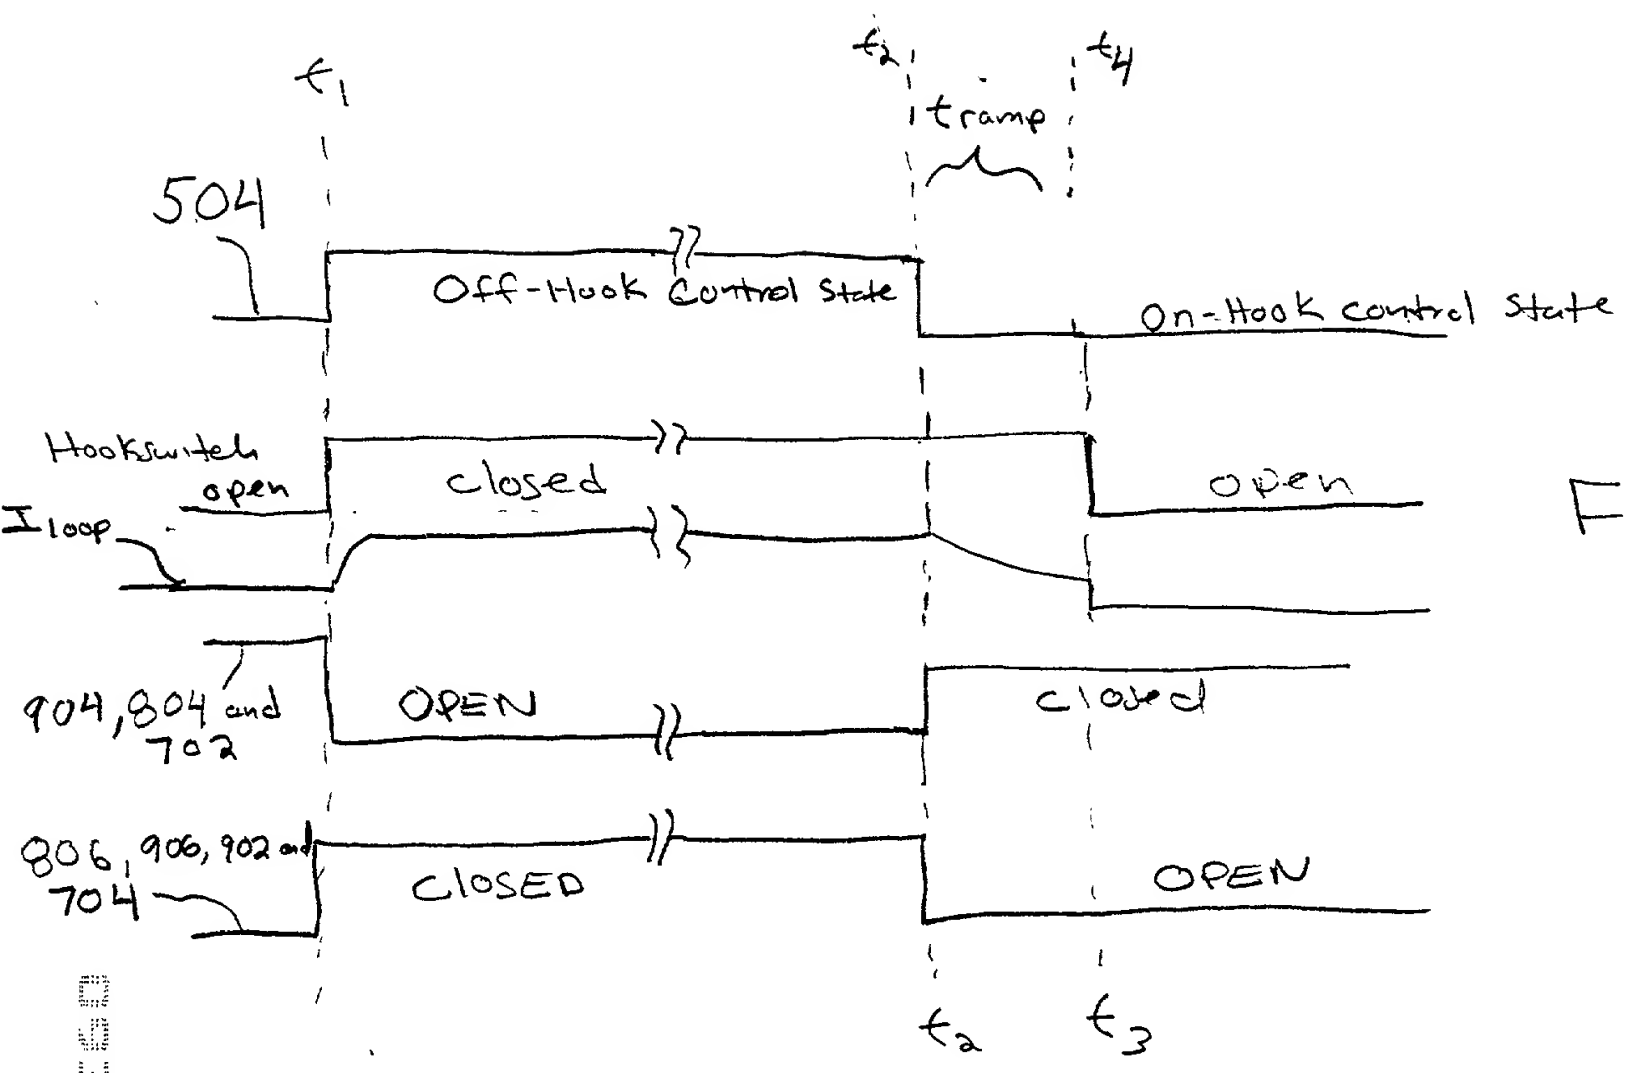 t1
t2
t4
tramp
504
Off-Hook Control State
On-Hook control State
Hookswitch
open
closed
open
F
I loop
904, 804 and
702
OPEN
closed
806, 906, 902 and
704
CLOSED
OPEN
t2
t3